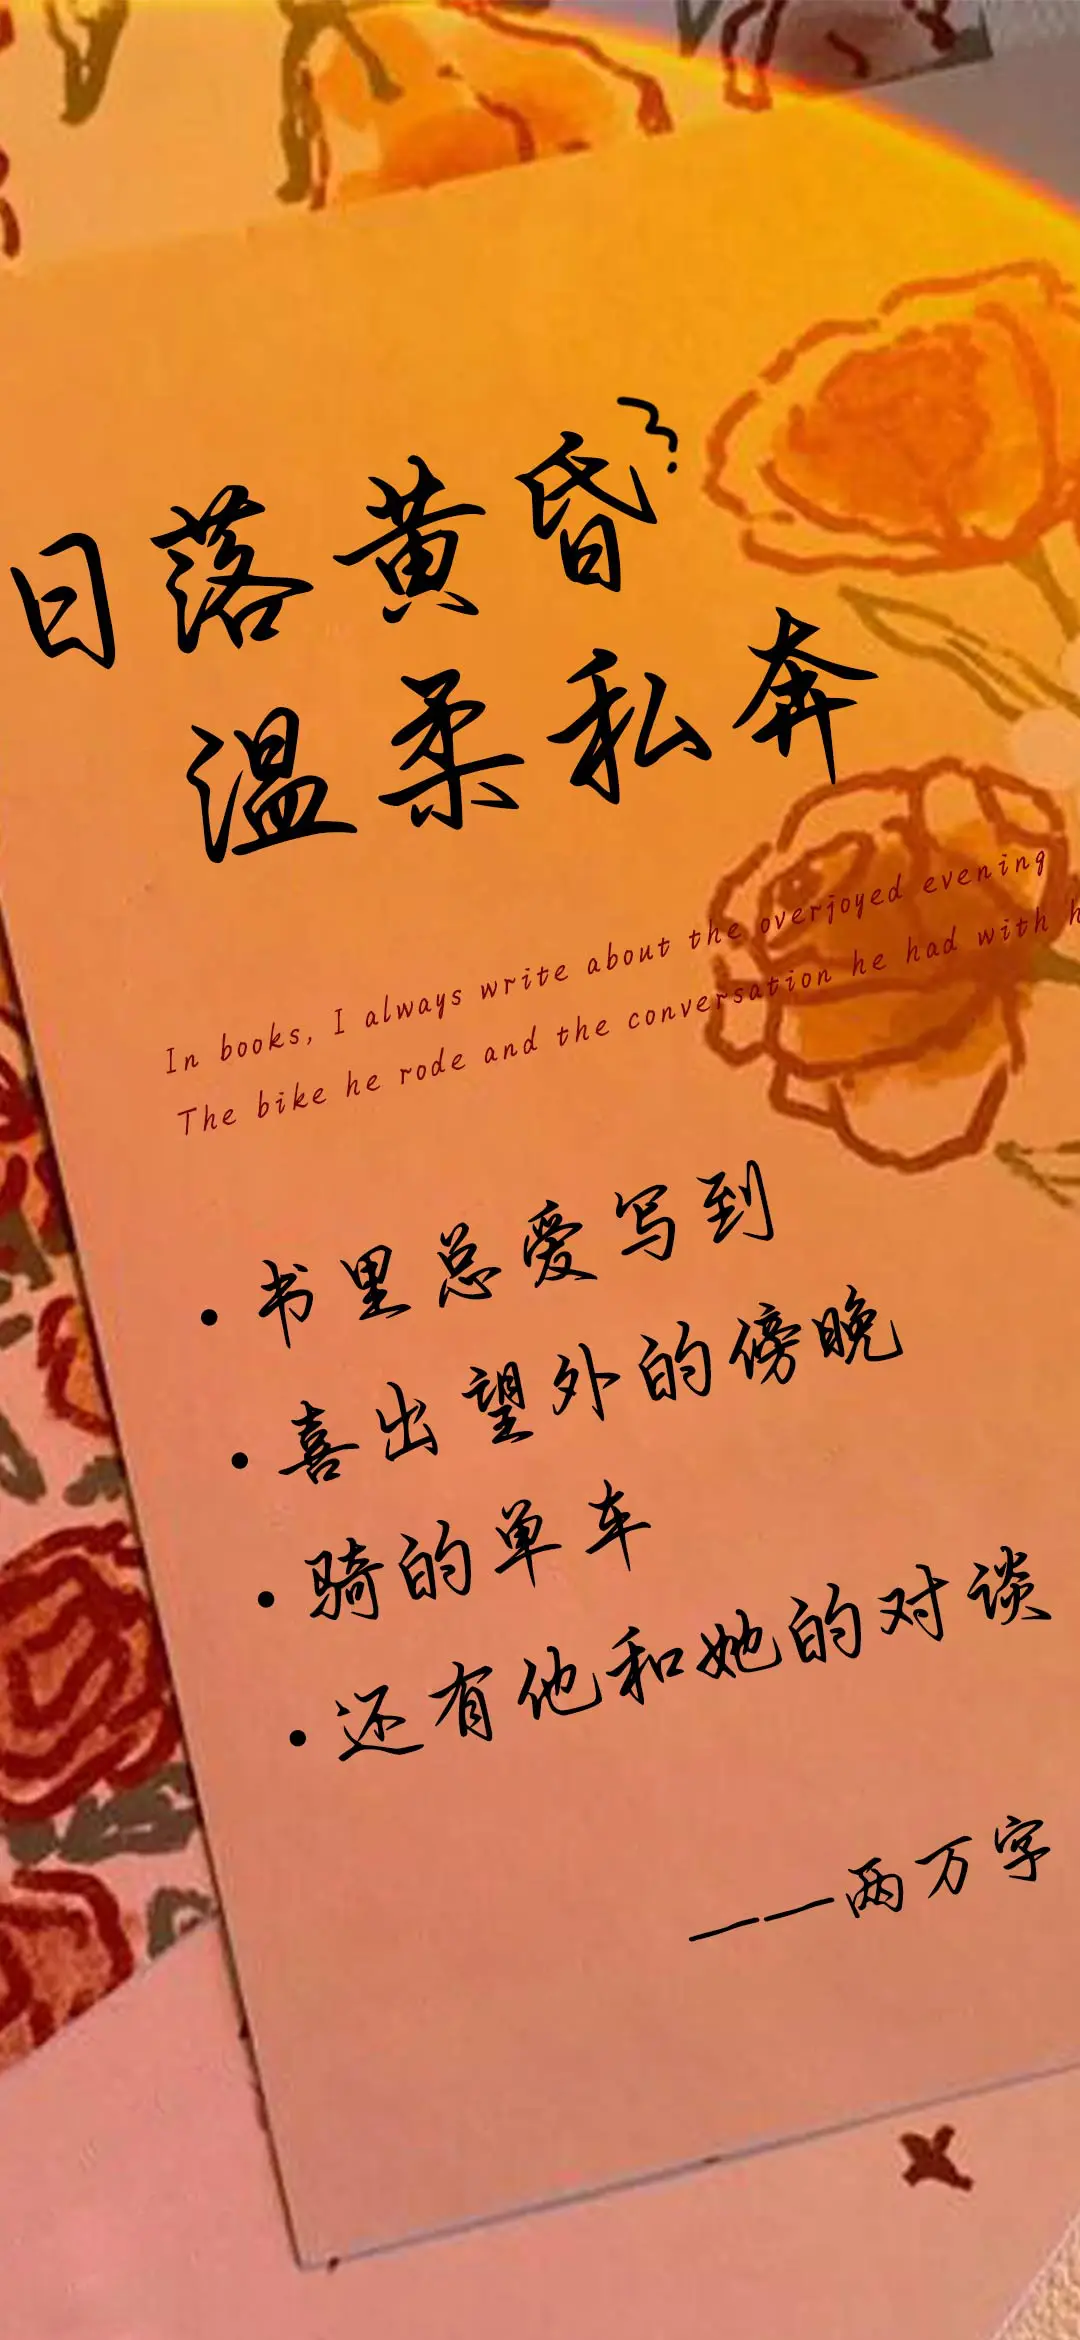 日落黄昏
温柔私奔
In books, I always write about the overjoyed evening
The bike he rode and the conversation he had with h
·书里总爱写到
·喜出望外的傍晚
·骑的单车
·还有他和她的对谈
——两万字